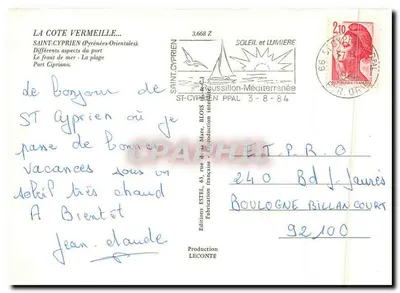 LA COTE VERMEILLE...
SAINT-CYPRIEN (Pyrénées-Orientales).
Différents aspects du port
Le front de mer - La plage
Port Cipriano.
3.668 Z
SAINT-CYPRIEN
SOLEIL et LUMIERE
Roussillon-Méditerranée
ST-CYPRIEN PPAL 3-8-84
2,10
66 ST CYPRIEN
le bonjour de
ST Cyprien où je
passe de bonnes
vacances sous un
soleil très chaud
A Bientôt
Jean-claude
Fabrication française - Reproduction interdite
Production
LECONTE
E.T.P.R.O
240 Bd J-Jaurès
BOULOGNE BILLANCOURT
92100